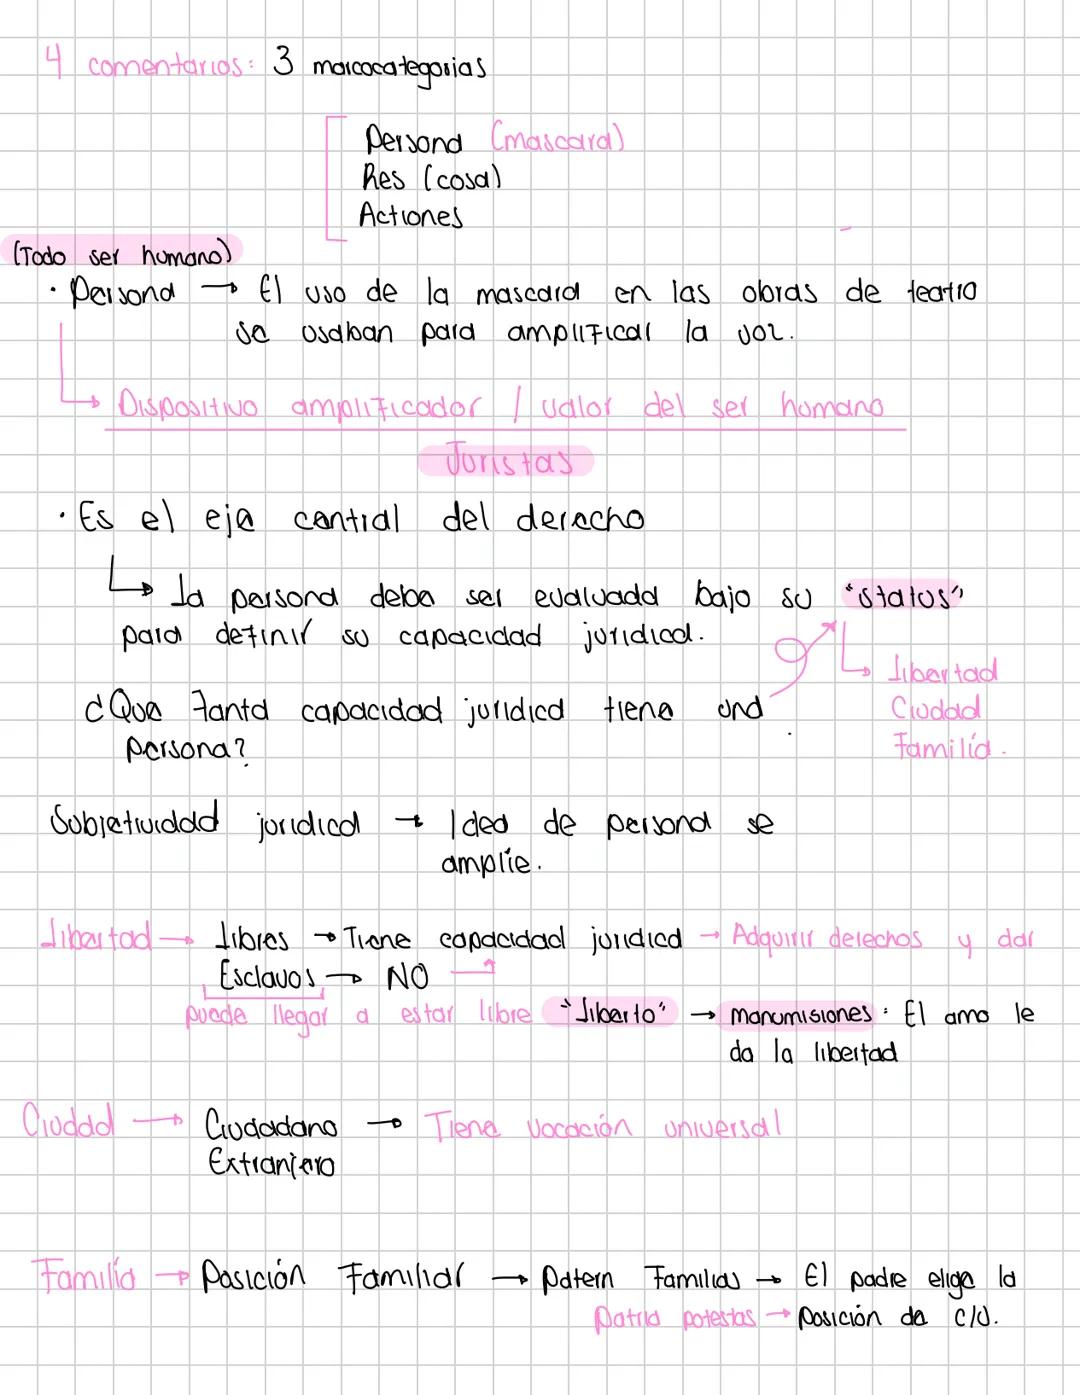 4 comentarios: 3 marcocategorias
Persona (mascara)
Res (cosa)
Actiones
(Todo ser humano)
· Persona → El uso de la mascara en las obras de teatro
se usaban para amplificar la voz.
↳ Dispositivo amplificador / valor del ser humano
Juristas
· Es el eje central del derecho
↳ La persona debe ser evaluada bajo su "status"
para definir su capacidad juridica.
↳ Libertad
Ciudad
Familia.
¿Que tanta capacidad juridica tiene una
persona?
Subjetividad juridica → Idea de persona se
amplie.
Libertad → Libres → Tiene capacidad juridica → Adquirir derechos y dar
Esclavos → NO
puede llegar a estar libre "Liberto" → manumisiones: El amo le
da la libertad
Ciudad → Ciudadano → Tiene vocación universal
Extranjero
Familia → Posición Familiar → Patern Familias → El padre elige la
Patria potestas → posición de c/u.